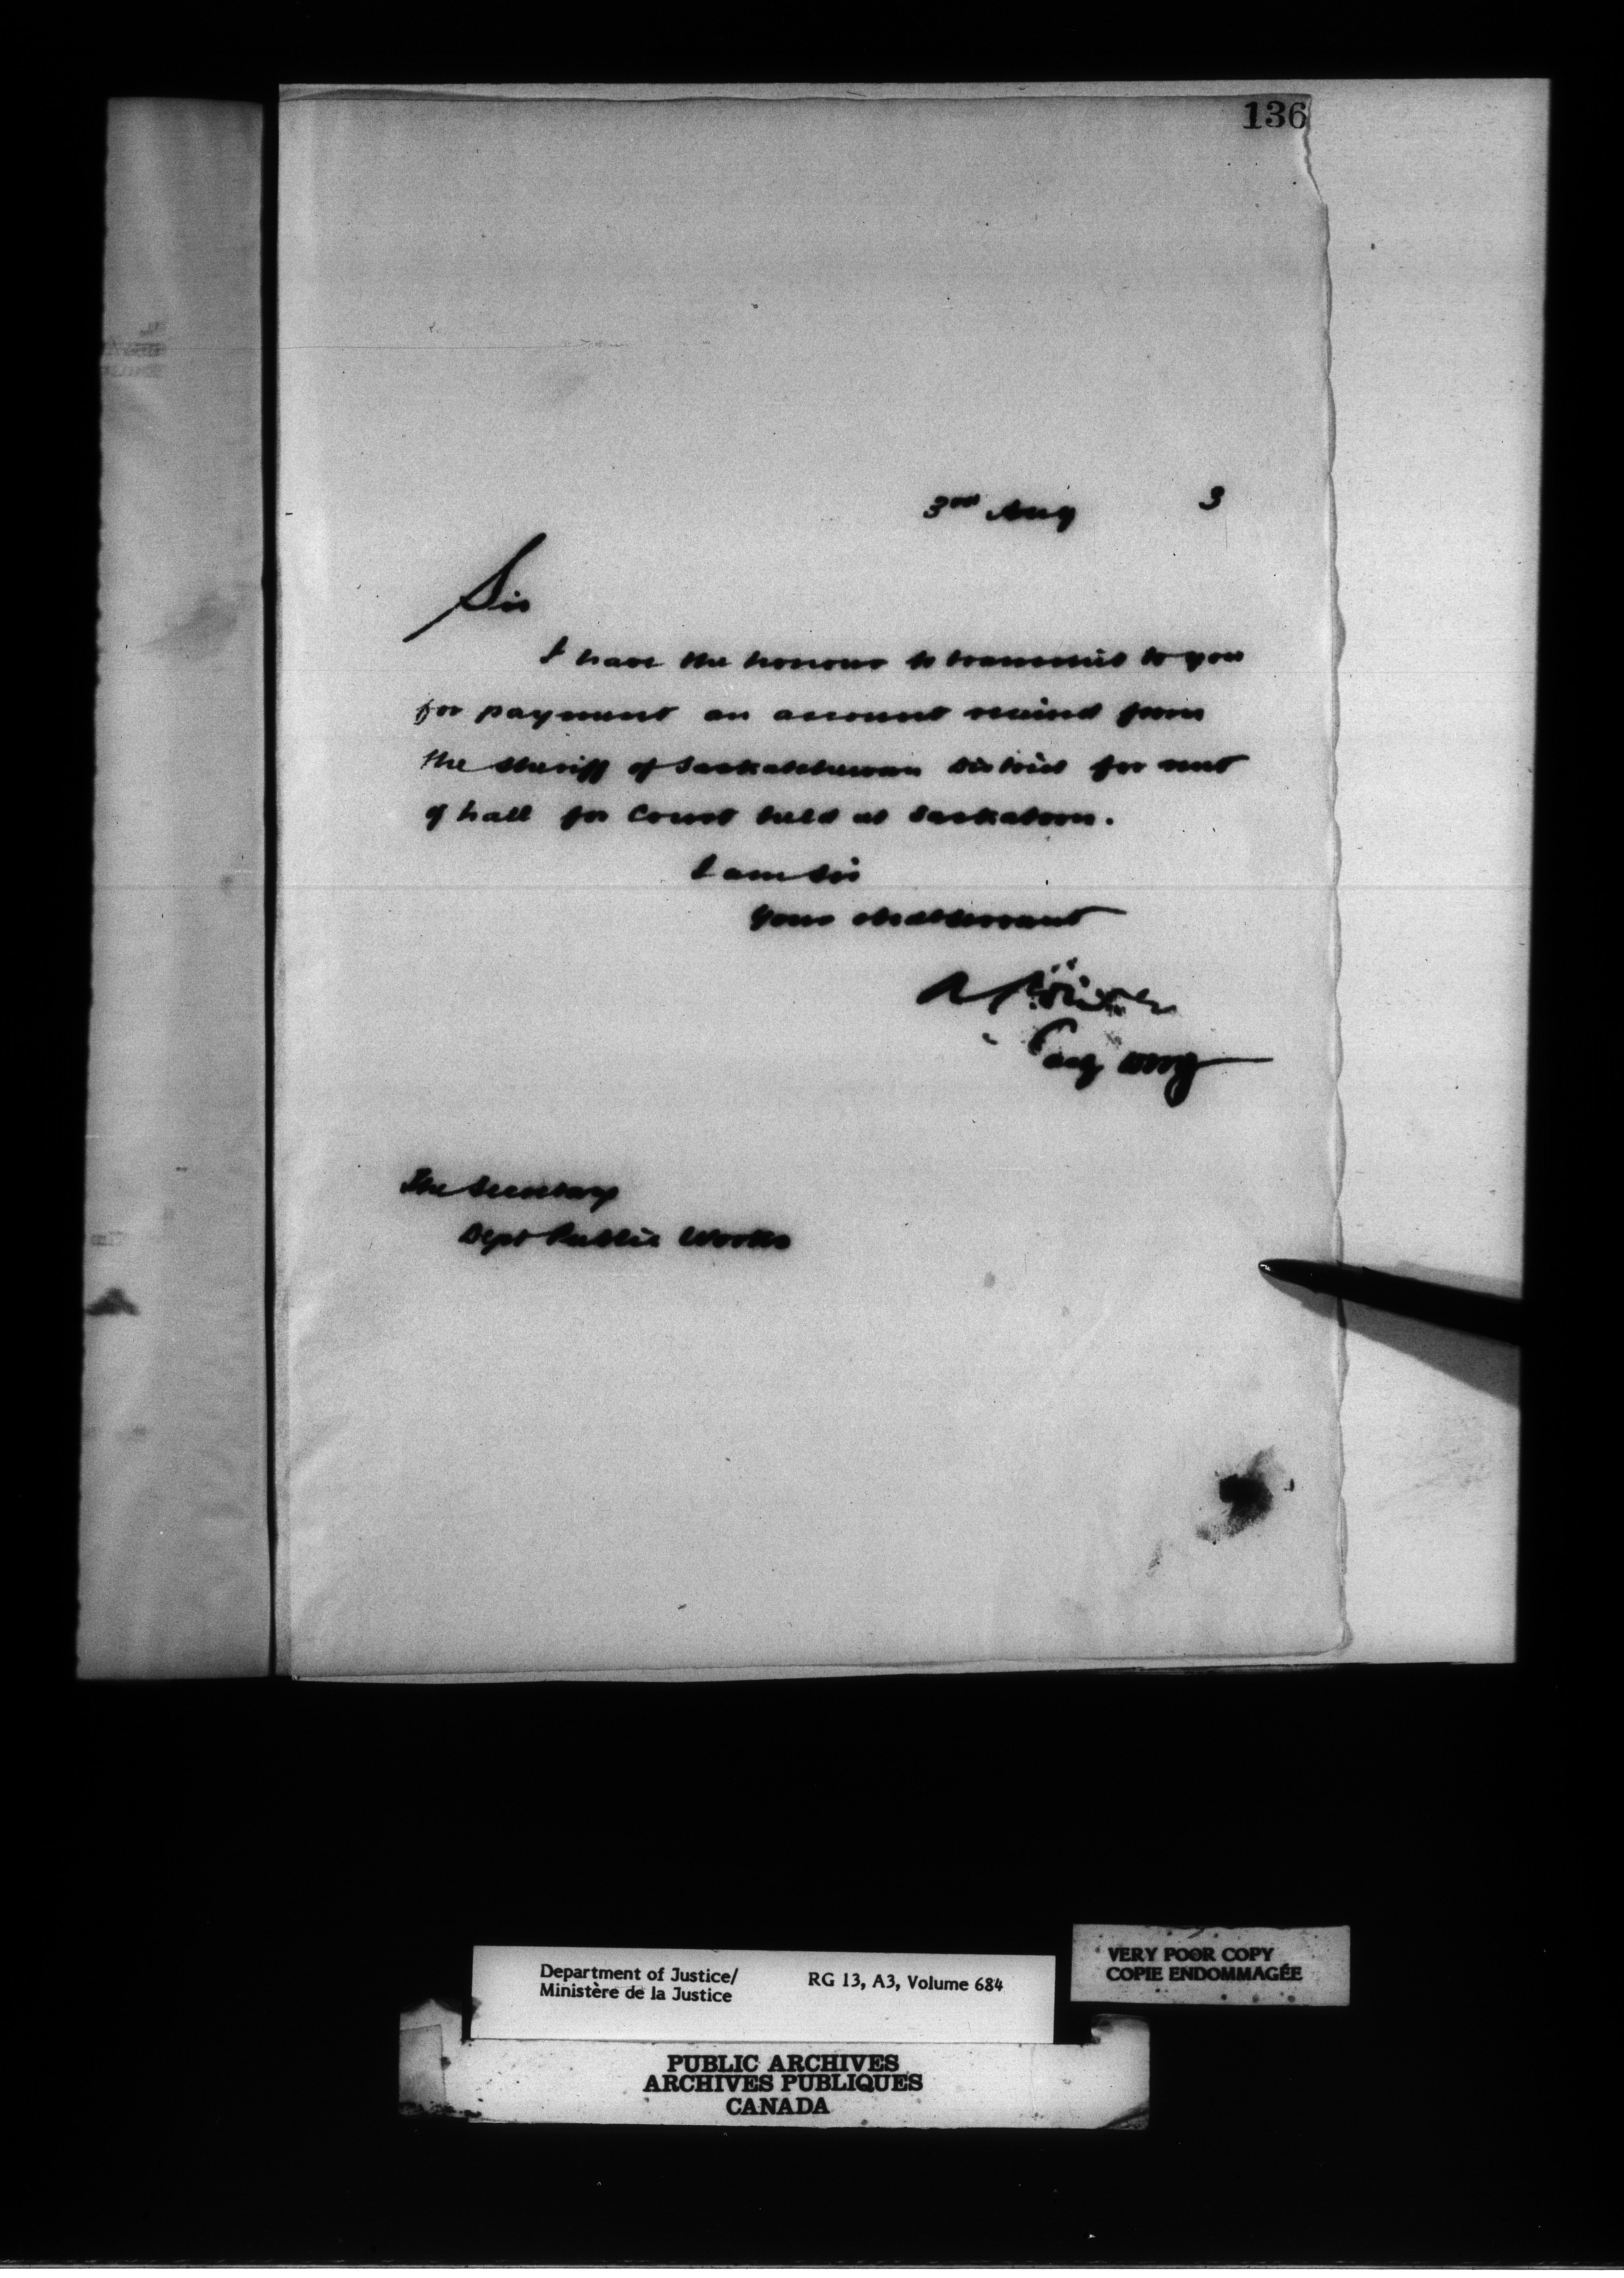 136
3rd Aug 3
Sir
I have the honour to transmit to you
for payment an account received from
the Sheriff of Saskatchewan District for rent
of hall for Court held at Saskatoon.
I am Sir
Your obedt servant
A Power
The Secretary
Dept Public Works
Department of Justice/
Ministère de la Justice
RG 13, A3, Volume 684
VERY POOR COPY
COPIE ENDOMMAGÉE
PUBLIC ARCHIVES
ARCHIVES PUBLIQUES
CANADA